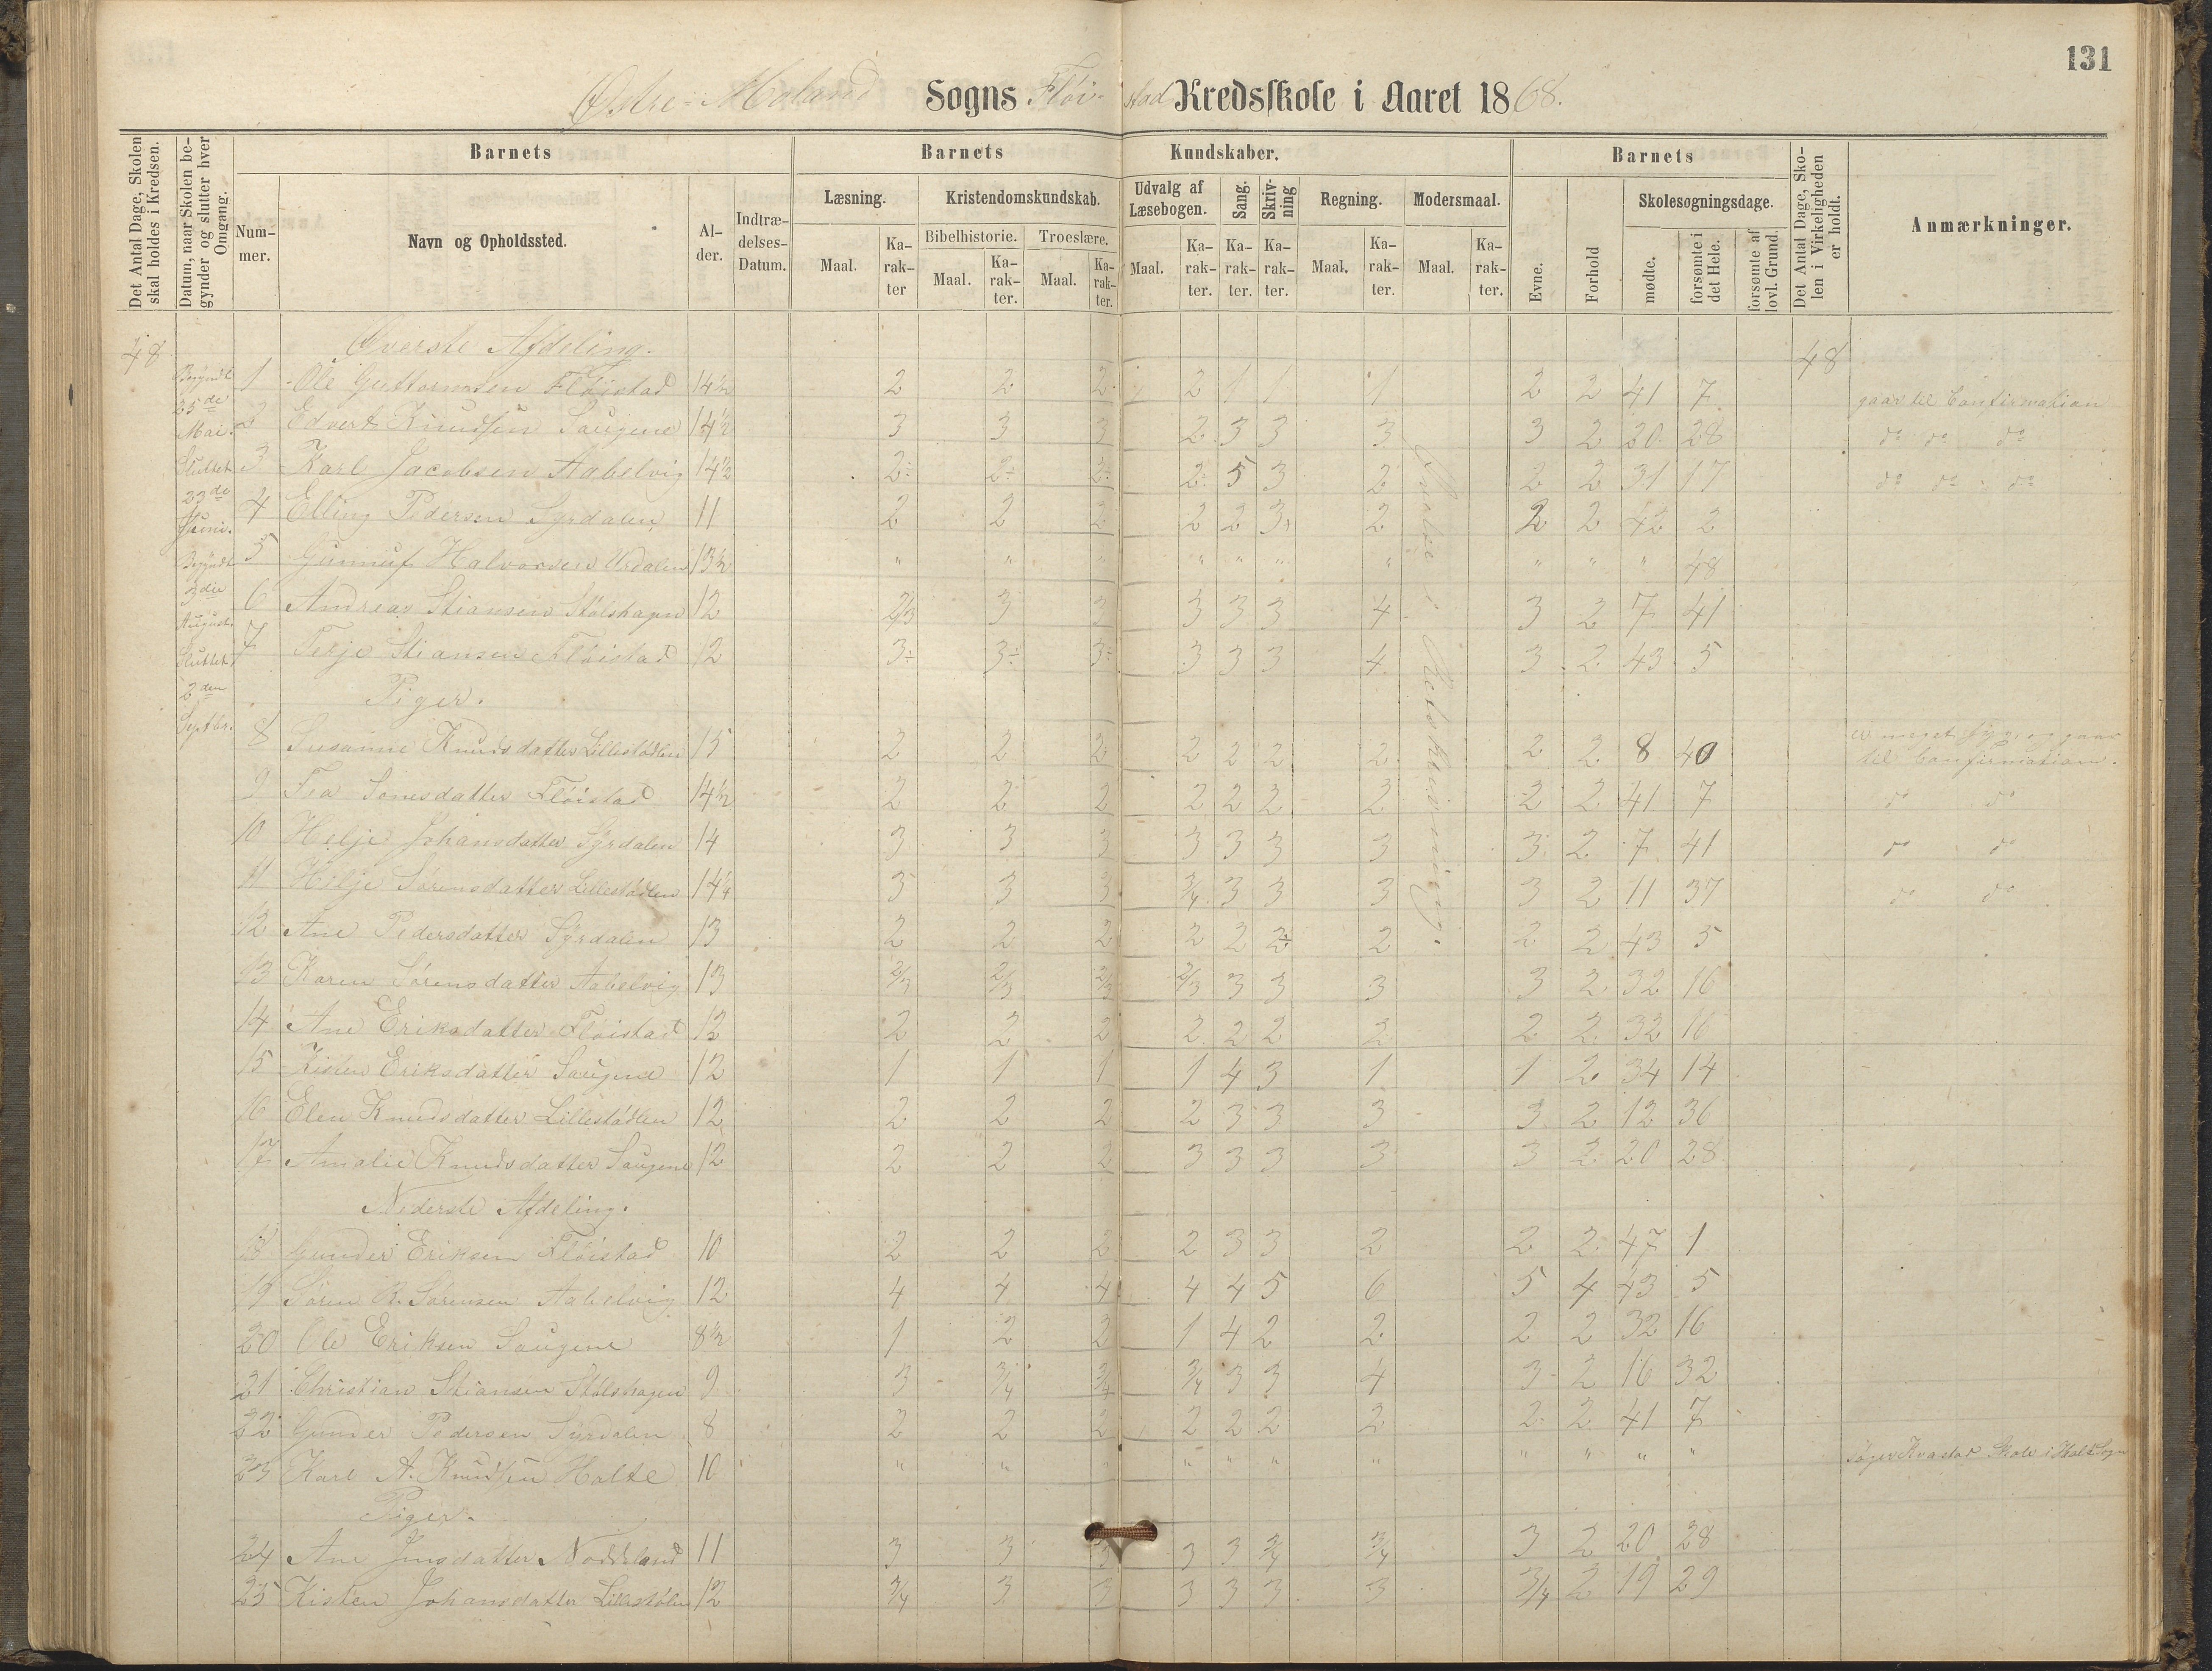 131
Østre-Moland Sogns Fløistad Kredsskole i Aaret 1868.
Det Antal Dage, Skolen skal holdes i Kredsen.
Datum, naar Skolen begynder og slutter hver Omgang.
Barnets
Nummer.
Navn og Opholdssted.
Alder.
Indtrædelses-Datum.
Barnets Kundskaber.
Læsning.
Maal.
Karakter
Kristendomskundskab.
Bibelhistorie.
Maal.
Karakter.
Troeslære.
Maal.
Karakter.
Udvalg af Læsebogen.
Maal.
Karakter.
Sang.
Karakter.
Skrivning
Karakter.
Regning.
Maal.
Karakter.
Modersmaal.
Maal.
Karakter.
Barnets
Evne.
Forhold
Skolesøgningsdage.
mødte.
forsømte i det Hele.
forsømte af lovl. Grund.
Det Antal Dage, Skolen i Virkeligheden er holdt.
Anmærkninger.
48 Øverste Afdeling. 48
Begyndt 25de Mai. Sluttet 23de Juni. Begyndt 3die August. Sluttet 2den Septbr.
Øvelse i Retskrivning.
1 Ole Guttormsen Fløistad 14½ 2 2 2 2 1 1 1 2 2 41 7 gaar til Confirmation
2 Edvert Knudsen Saugene 14½ 3 3 3 2 3 3 3 3 2 20 28 do do do
3 Karl Jacobsen Aabelvig 14½ 2÷ 2÷ 2÷ 2÷ 5 3 2 2 2 31 17 do do do
4 Elling Pedersen Syrdalen 11 2 2 2 2 2 3 2 2 2 42 2
5 Gunnuf Halvorsen Urdalen 13½ " " " " " " " " " " 48
6 Andreas Stiansen Stølshagen 12 2/3 3 3 3 3 3 4 3 2 7 41
7 Terje Stiansen Fløistad 12 3÷ 3÷ 3÷ 3 3 3 4 3 2 43 5
Piger.
8 Susanne Knudsdatter Lillestødlen 15 2 2 2 2 2 2 2 2 2 8 40 er meget syg, og gaar til Confirmation.
9 Tea Tønesdatter Fløistad 14½ 2 2 2 2 2 2 2 2 2 41 7 do do
10 Helje Johansdatter Syrdalen 14 3 3 3 3 3 3 3 3 2 7 41 do do
11 Helje Sørensdatter Lillestødlen 14¼ 3 3 3 3/4 3 3 3 3 2 11 37 do do
12 Ane Pedersdatter Syrdalen 13 2 2 2 2 2 2÷ 2 2 2 43 5
13 Karen Sørensdatter Aabelvig 13 2/3 2/3 2/3 2/3 3 3 3 3 2 32 16
14 Ane Eriksdatter Fløistad 12 2 2 2 2 2 2 2 2 2 32 16
15 Kisten Eriksdatter Saugene 12 1 1 1 1 4 3 1 1 2 34 14
16 Elen Knudsdatter Lillestødlen 12 2 2 2 2 3 3 3 3 2 12 36
17 Amalie Knudsdatter Saugene 12 2 2 2 3 3 3 3 3 2 20 28
Nederste Afdeling.
18 Gunder Eriksen Fløistad 10 2 2 2 2 3 3 2 2 2 47 1
19 Søren R. Sørensen Aabelvig 12 4 4 4 4 4 5 6 5 4 43 5
20 Ole Eriksen Saugene 8½ 1 2 2 1 4 2 2 2 2 32 16
21 Christian Stiansen Stølshagen 9 3 3/4 3/4 3/4 3 3 4 3 2 16 32
22 Gunder Pedersen Syrdalen 8 2 2 2 2 2 2 2 2 2 41 7
23 Karl A. Knudsen Holte 10 " " " " " " " " " " " søger Kvastad Skole i Holt Sogn
Piger.
24 Ane Jensdatter Noddeland 11 3 3 3 3 3 3/4 3/4 3 2 20 28
25 Kisten Johansdatter Lillestølen 12 3/4 3 3 3 3 3 3 3/4 2 19 29